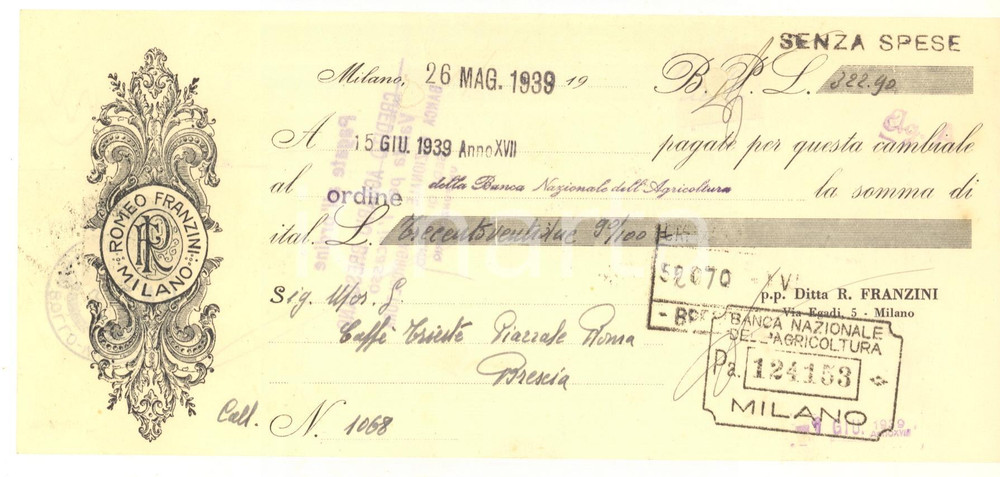 SENZA SPESE
Milano, 26 MAG. 1939 19
B. P. L. 322.90
A 15 GIU. 1939 Anno XVII pagate per questa cambiale
al ordine della Banca Nazionale dell'Agricoltura la somma di
ital. L. Trecentoventidue 90/100
ROMEO FRANZINI
MILANO
52070
p.p. Ditta R. FRANZINI
Via Egadi, 5 - Milano
Sig.
Caffè Trieste Piazzale Roma
Brescia
BANCA NAZIONALE
DELL'AGRICOLTURA
Pa. 124153
MILANO
Call. N. 1068
GIU. 1939
ANNO XVII